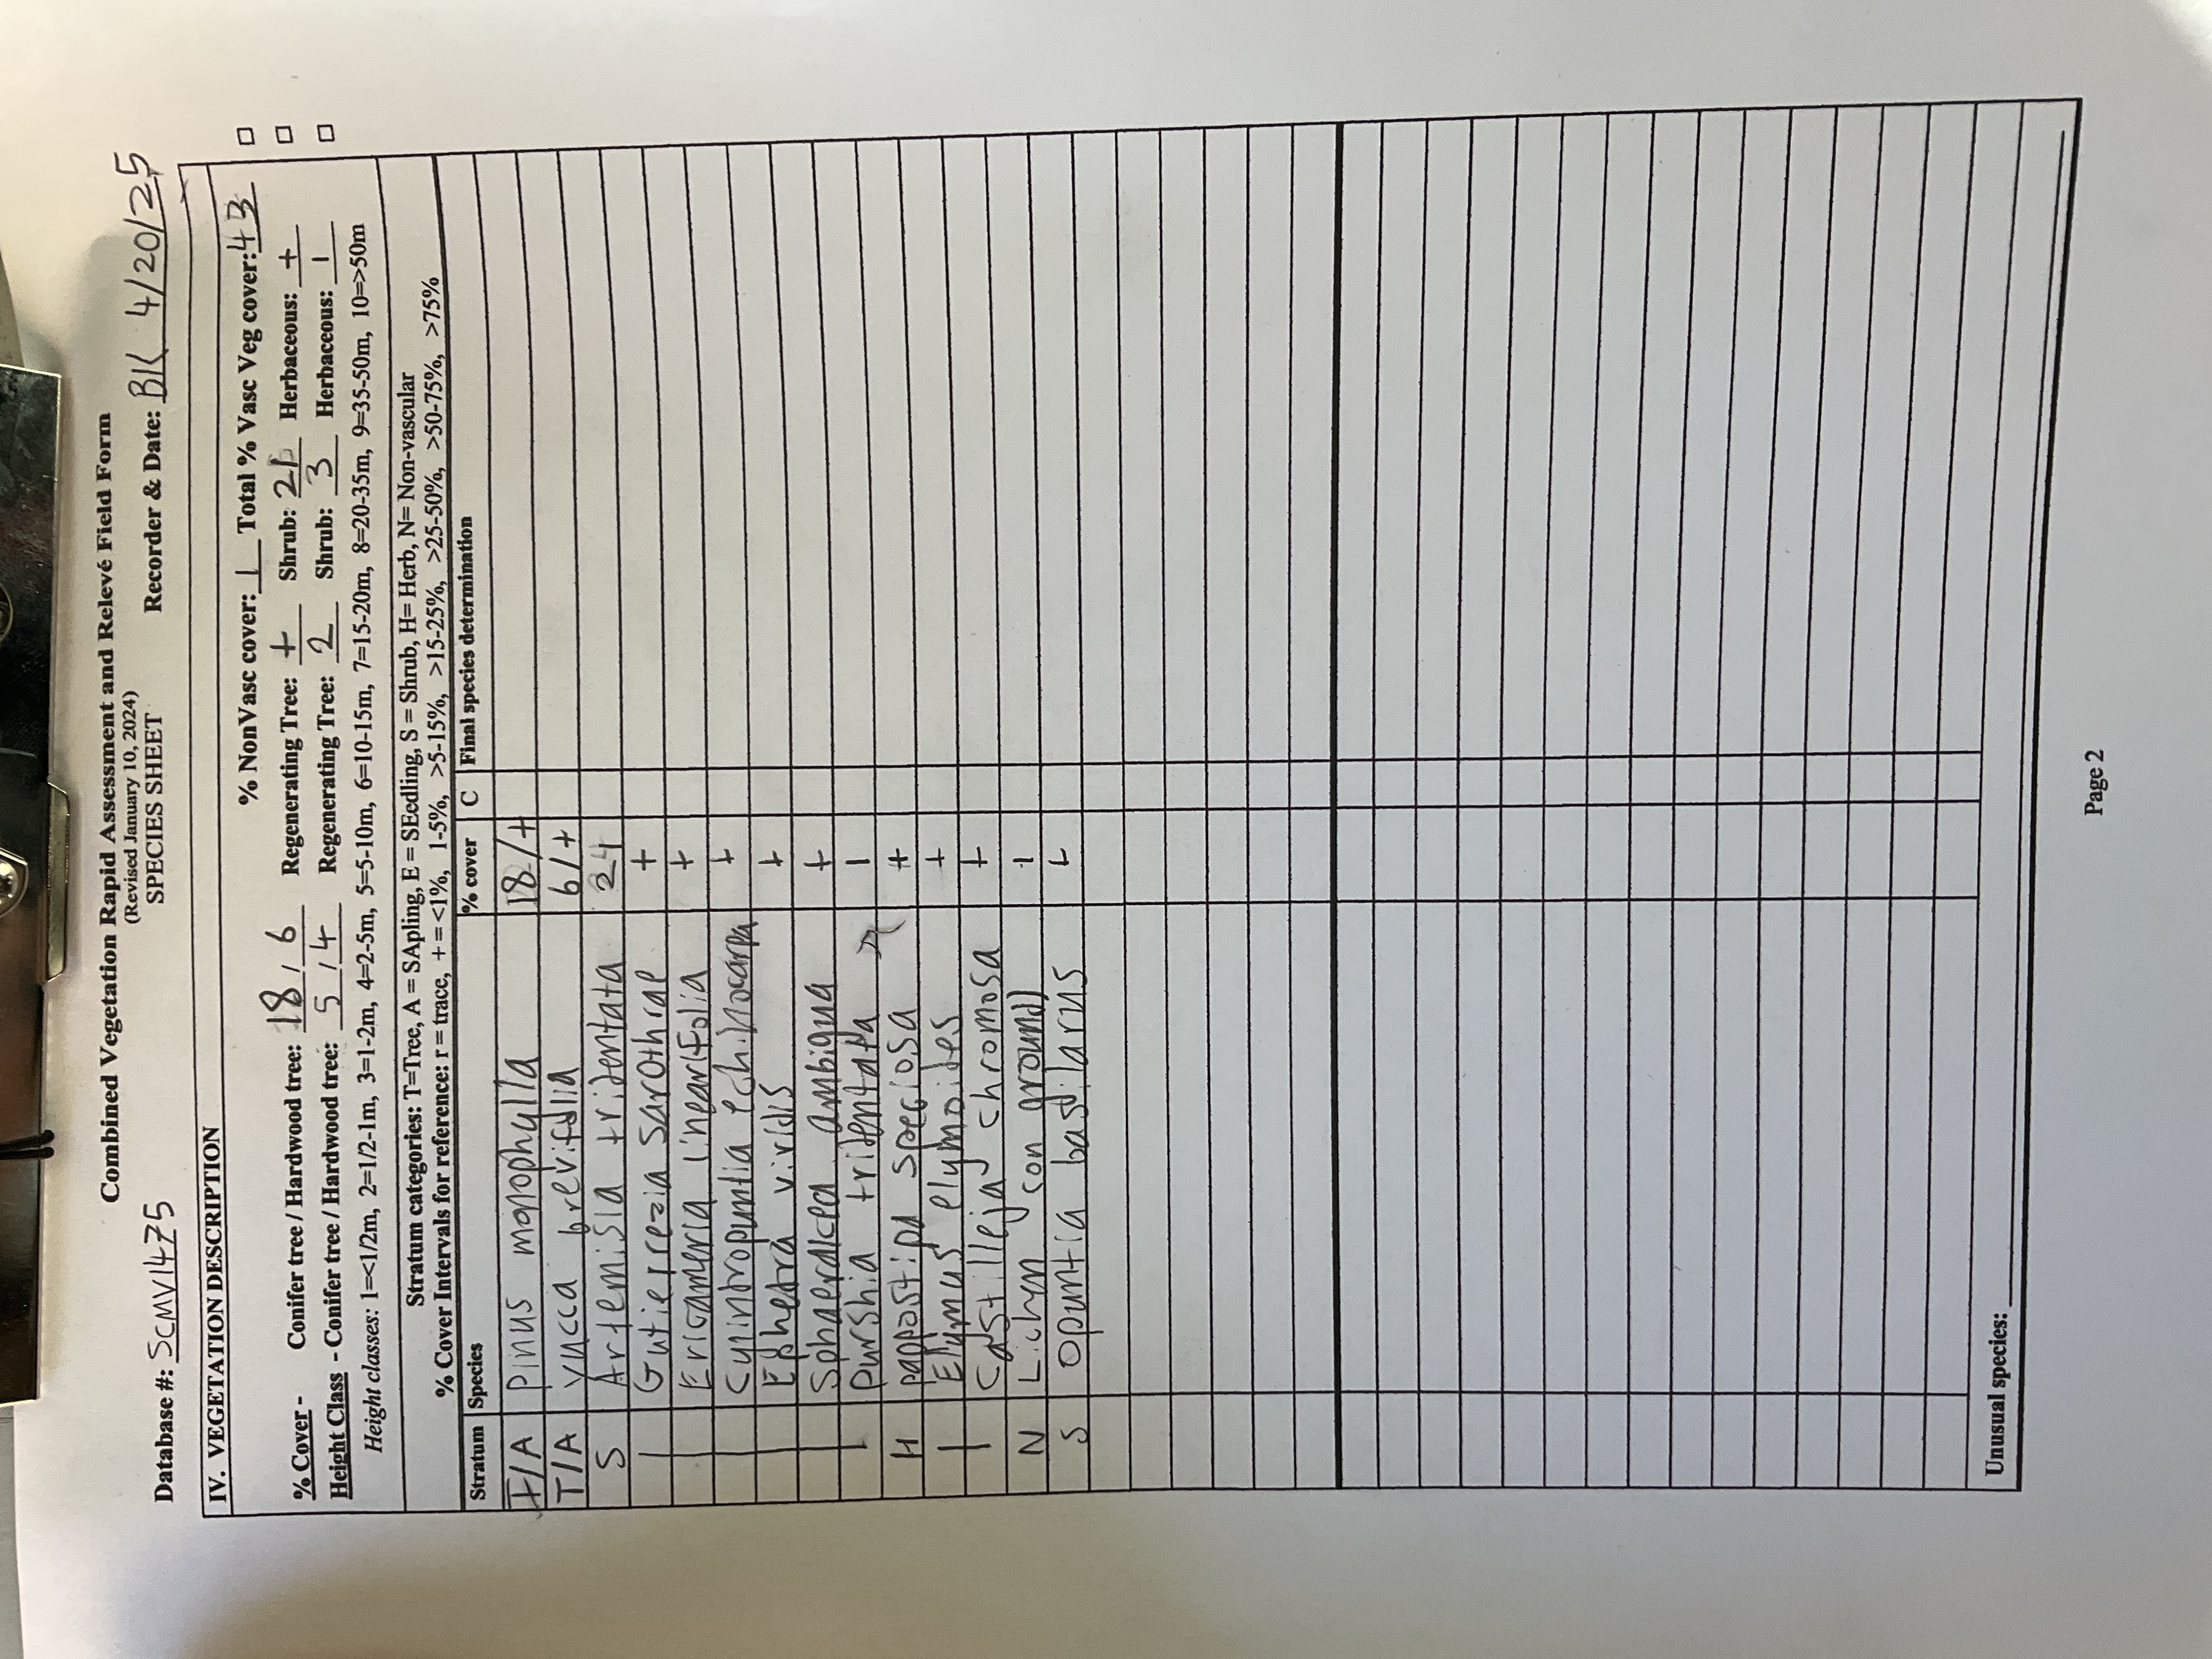 Combined Vegetation Rapid Assessment and Relevé Field Form
(Revised January 10, 2024)
SPECIES SHEET
Database #: SCMV1475 Recorder & Date: BK 4/20/25
IV. VEGETATION DESCRIPTION
% NonVasc cover: 1 Total % Vasc Veg cover: 43
% Cover - Conifer tree / Hardwood tree: 18 / 6 Regenerating Tree: + Shrub: Herbaceous: +
Height Class - Conifer tree / Hardwood tree: 5 / 4 Regenerating Tree: 2 Shrub: 3 Herbaceous: 1
Height classes: 1=<1/2m, 2=1/2-1m, 3=1-2m, 4=2-5m, 5=5-10m, 6=10-15m, 7=15-20m, 8=20-35m, 9=35-50m, 10=>50m
Stratum categories: T=Tree, A = SApling, E = SEedling, S = Shrub, H= Herb, N= Non-vascular
% Cover Intervals for reference: r = trace, + = <1%, 1-5%, >5-15%, >15-25%, >25-50%, >50-75%, >75%
Stratum Species % cover C Final species determination
T/A Pinus monophylla 18/+
T/A Yucca brevifolia 6/+
S Artemisia tridentata 24
| Gutierrezia sarothrae +
| Ericameria linearifolia +
| Cylindropuntia echinocarpa +
| Ephedra viridis +
| Sphaeralcea ambigua +
| Purshia tridentata 1
H Pappostipa speciosa +
| Elymus elymoides +
| Castilleja chromosa +
N Lichyn (on ground) 1
S Opuntia basilarus +
Unusual species:
Page 2